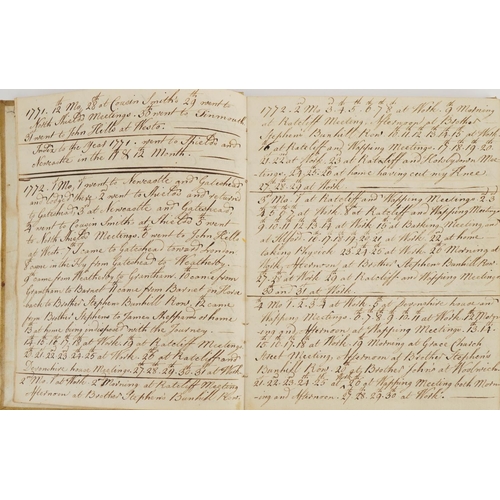 1771. 12 Mo. 28 at Cousin Smith's 29 went to
North Shields Meetings. 30 went to Tinmouth
31 went to John Hells at Westo.
In the Year 1771. went to Shields and
Newcastle in the 11 & 12 Month.
1772. 1 Mo. 1 went to Newcastle and Gateshead
2 went to Shields and returned
to Gateshead 3 at Newcastle and Gateshead
4 went to Cousin Smith. at Shields 5 went
to North Shields Meetings. 6 went to John Hells
at Westo. 7 I came to Gateshead toward London
8 came in the Fly from Gateshead to Weatherby
9 came from Weatherby to Grantham. 10 came from
Grantham to Barnet 11 came from Barnet in
back to Brother Stephens Bunhill Row. 12 came
from Brother Stephens to James and home
13 at home being indisposed with the Journey.
14. 15. 16. 17. 18 at Work. 19 at Ratcliff Meetings
20. 21. 22. 23. 24. 25 at Work. 26 at Ratcliff and
Devonshire house Meetings. 27. 28. 29. 30. 31 at Work.
2 Mo. 1 at Work. 2 Morning at Ratcliff Meeting
Afternoon at Brother Stephen's Bunhill Row.
1772. 2 Mo. 3. 4. 5. 6. 7. 8 at Work. 9 Morning
at Ratcliff Meeting. Afternoon at Brother
Stephens Bunhill Row. 10. 11. 12. 13. 14. 15 at Work
16 at Ratcliff and Wapping Meetings. 17. 18. 19. 20.
21. 22 at Work. 23 at Ratcliff and Horslydown Meetings.
24. 25. 26 at home having Knee.
27. 28. 29 at Work
3 Mo. 1 at Ratcliff and Wapping Meetings 2. 3
4. 5. 6. 7 at Work. 8 at Ratcliff and Wapping Meetings
9. 10. 11. 12. 13. 14 at Work 15 at Barking Meeting, and
at Ilford. 16. 17. 18. 19. 20. 21 at Work. 22 at home
taking Physick. 23. 24. 25 at Work. 26 Morning at
Work, Afternoon at Brother Stephens Bunhill Row.
27. 28 at Work. 29 at Ratcliff and Wapping Meetings
30 and 31 at Work.
4 Mo. 1. 2. 3. 4 at Work. 5 at Devonshire house and
Wapping Meetings. 6. 7. 8. 9. 10. 11 at Work. 12 Morning
and Afternoon at Wapping Meetings. 13. 14.
15. 16. 17. 18 at Work. 19 Morning at Grace Church
Street Meeting. Afternoon at Brother Stephen's
Bunhill Row. 20 at Brother Johns at Woolwich
21. 22. 23. 24. 25 at 26 at Wapping Meeting both Morning
and Afternoon. 27. 28. 29. 30 at Work.